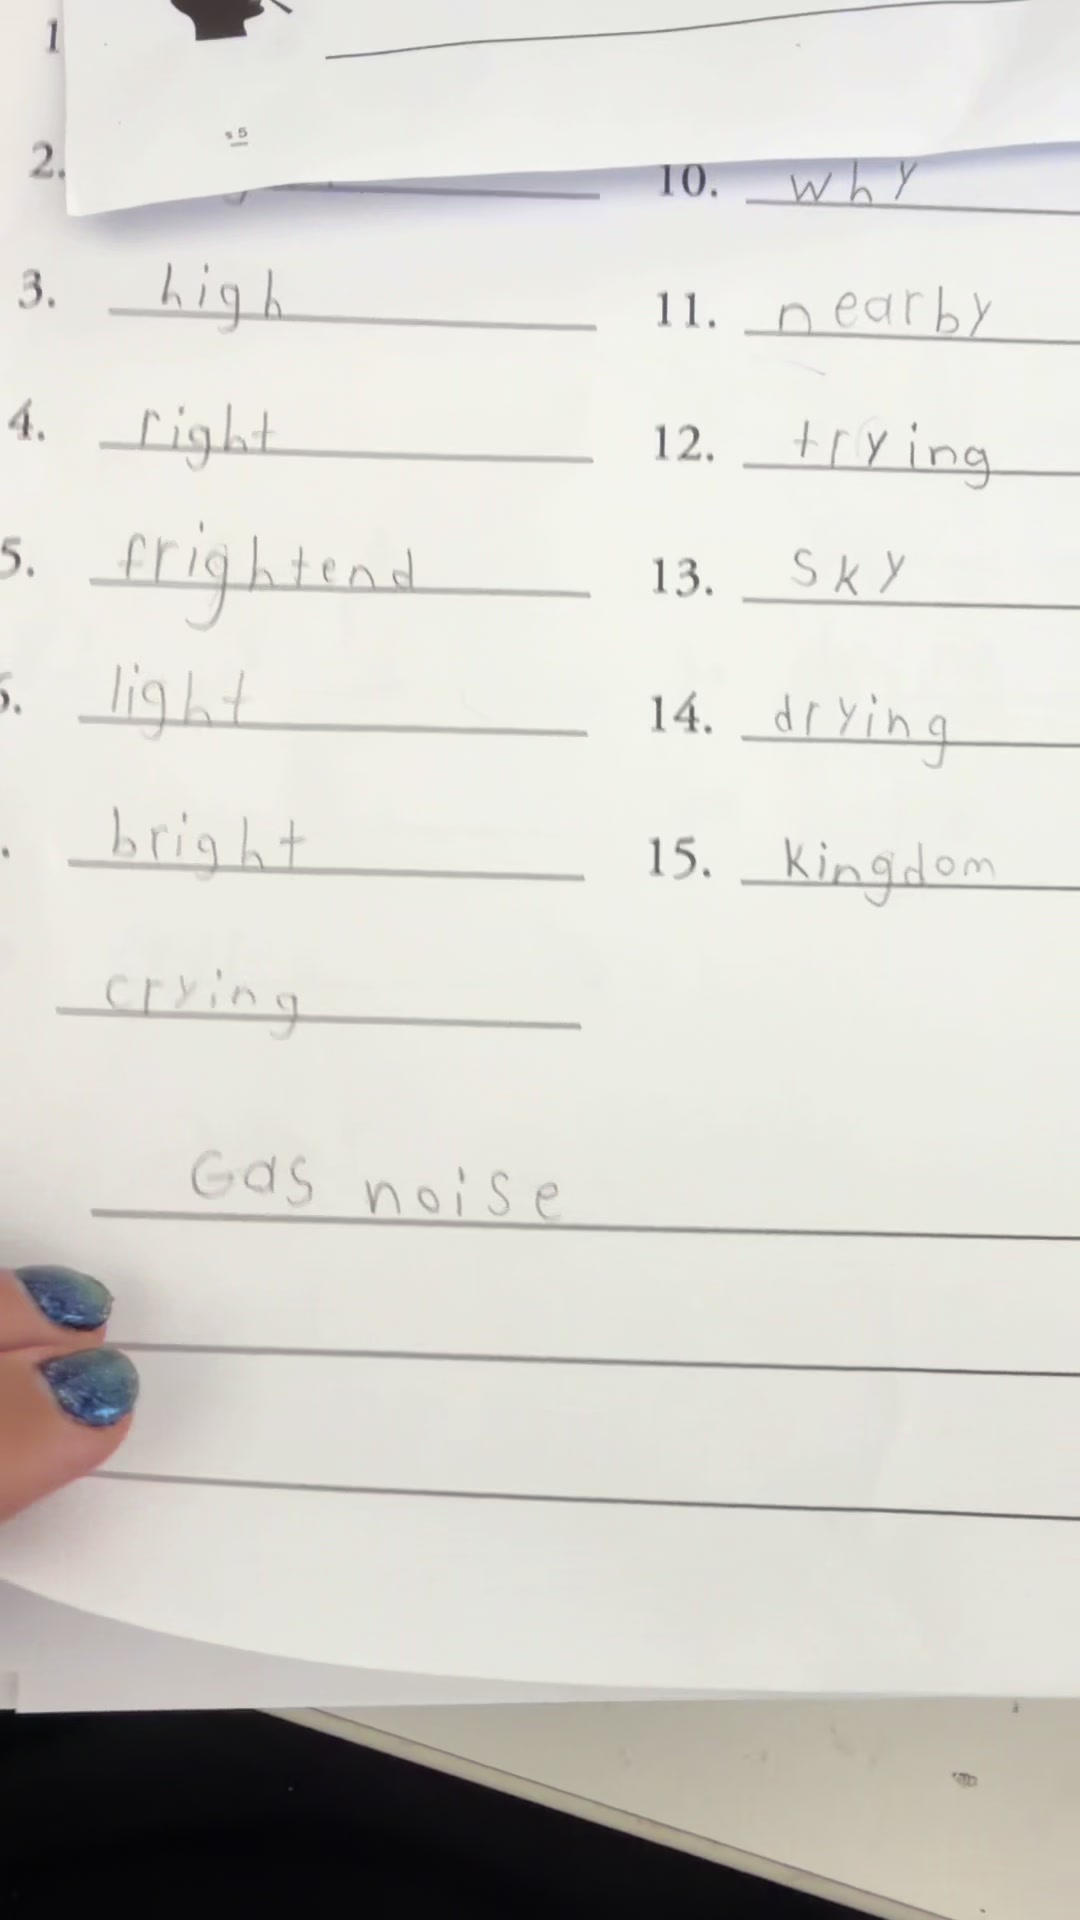 1
s 5
2.
10. why
3. high
11. nearby
4. right
12. trying
5. frightend
13. sky
light
14. drying
bright
15. kingdom
crying
Gas noise